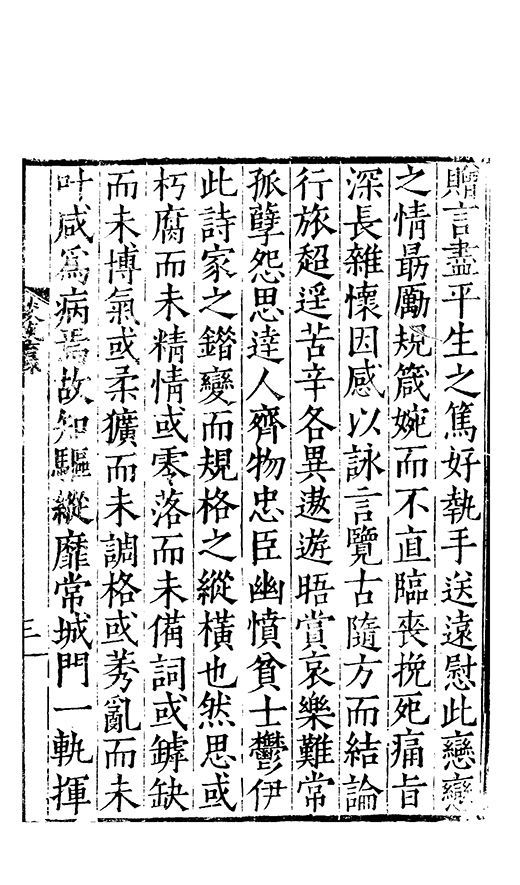 贈言盡平生之篤好執手送遠慰此戀戀
之情勗勵規箴婉而不直臨喪挽死痛旨
深長雜懷因感以詠言覽古隨方而結論
行旅超遥苦辛各異遨遊晤賞哀樂難常
孤孽怨思達人齊物忠臣幽憤貧士鬱伊
此詩家之錯變而規格之縱橫也然思或
朽腐而未精情或零落而未備詞或罅缺
而未博氣或柔獷而未調格或莠亂而未
叶咸爲病焉故知驅縱靡常城門一軌揮
三